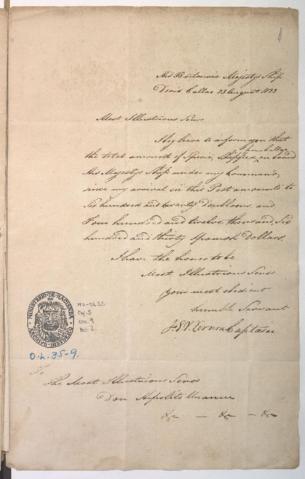 His Britannic Majesty's Ship
Callao 23 August 1822
Most Illustrious Sirs
I beg leave to inform you that
the total amount of Specie Shipped on board
His Majesty's Ship under my command,
since my arrival in this Port amounts to
Six hundred and twenty Doubloons and
Four hundred and twelve thousand, Six
hundred and thirty Spanish Dollars.
I have the honor to be
Most Illustrious Sirs
your most obedient
humble Servant
Captain
MINISTERIO DE HACIENDA
O.L. 35-9.
To
The Most Illustrious Sirs
Don Hipolito Unanue
&c — &c — &c